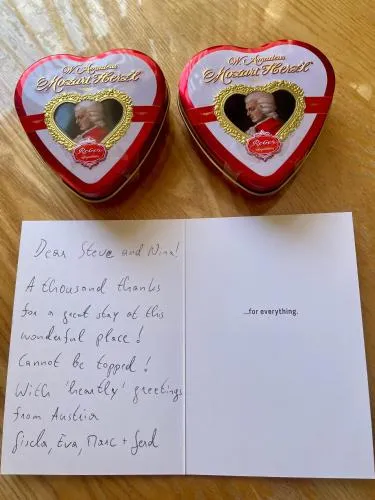 W. Amadeus
Mozart Herzl
Reber
W. Amadeus
Mozart Herzl
Reber
Dear Steve and Nina!
A thousand thanks
for a great stay at this
wonderful place!
Cannot be topped!
With 'heartly' greetings
from Austria
Gisela, Eva, Marc + Gerd
...for everything.